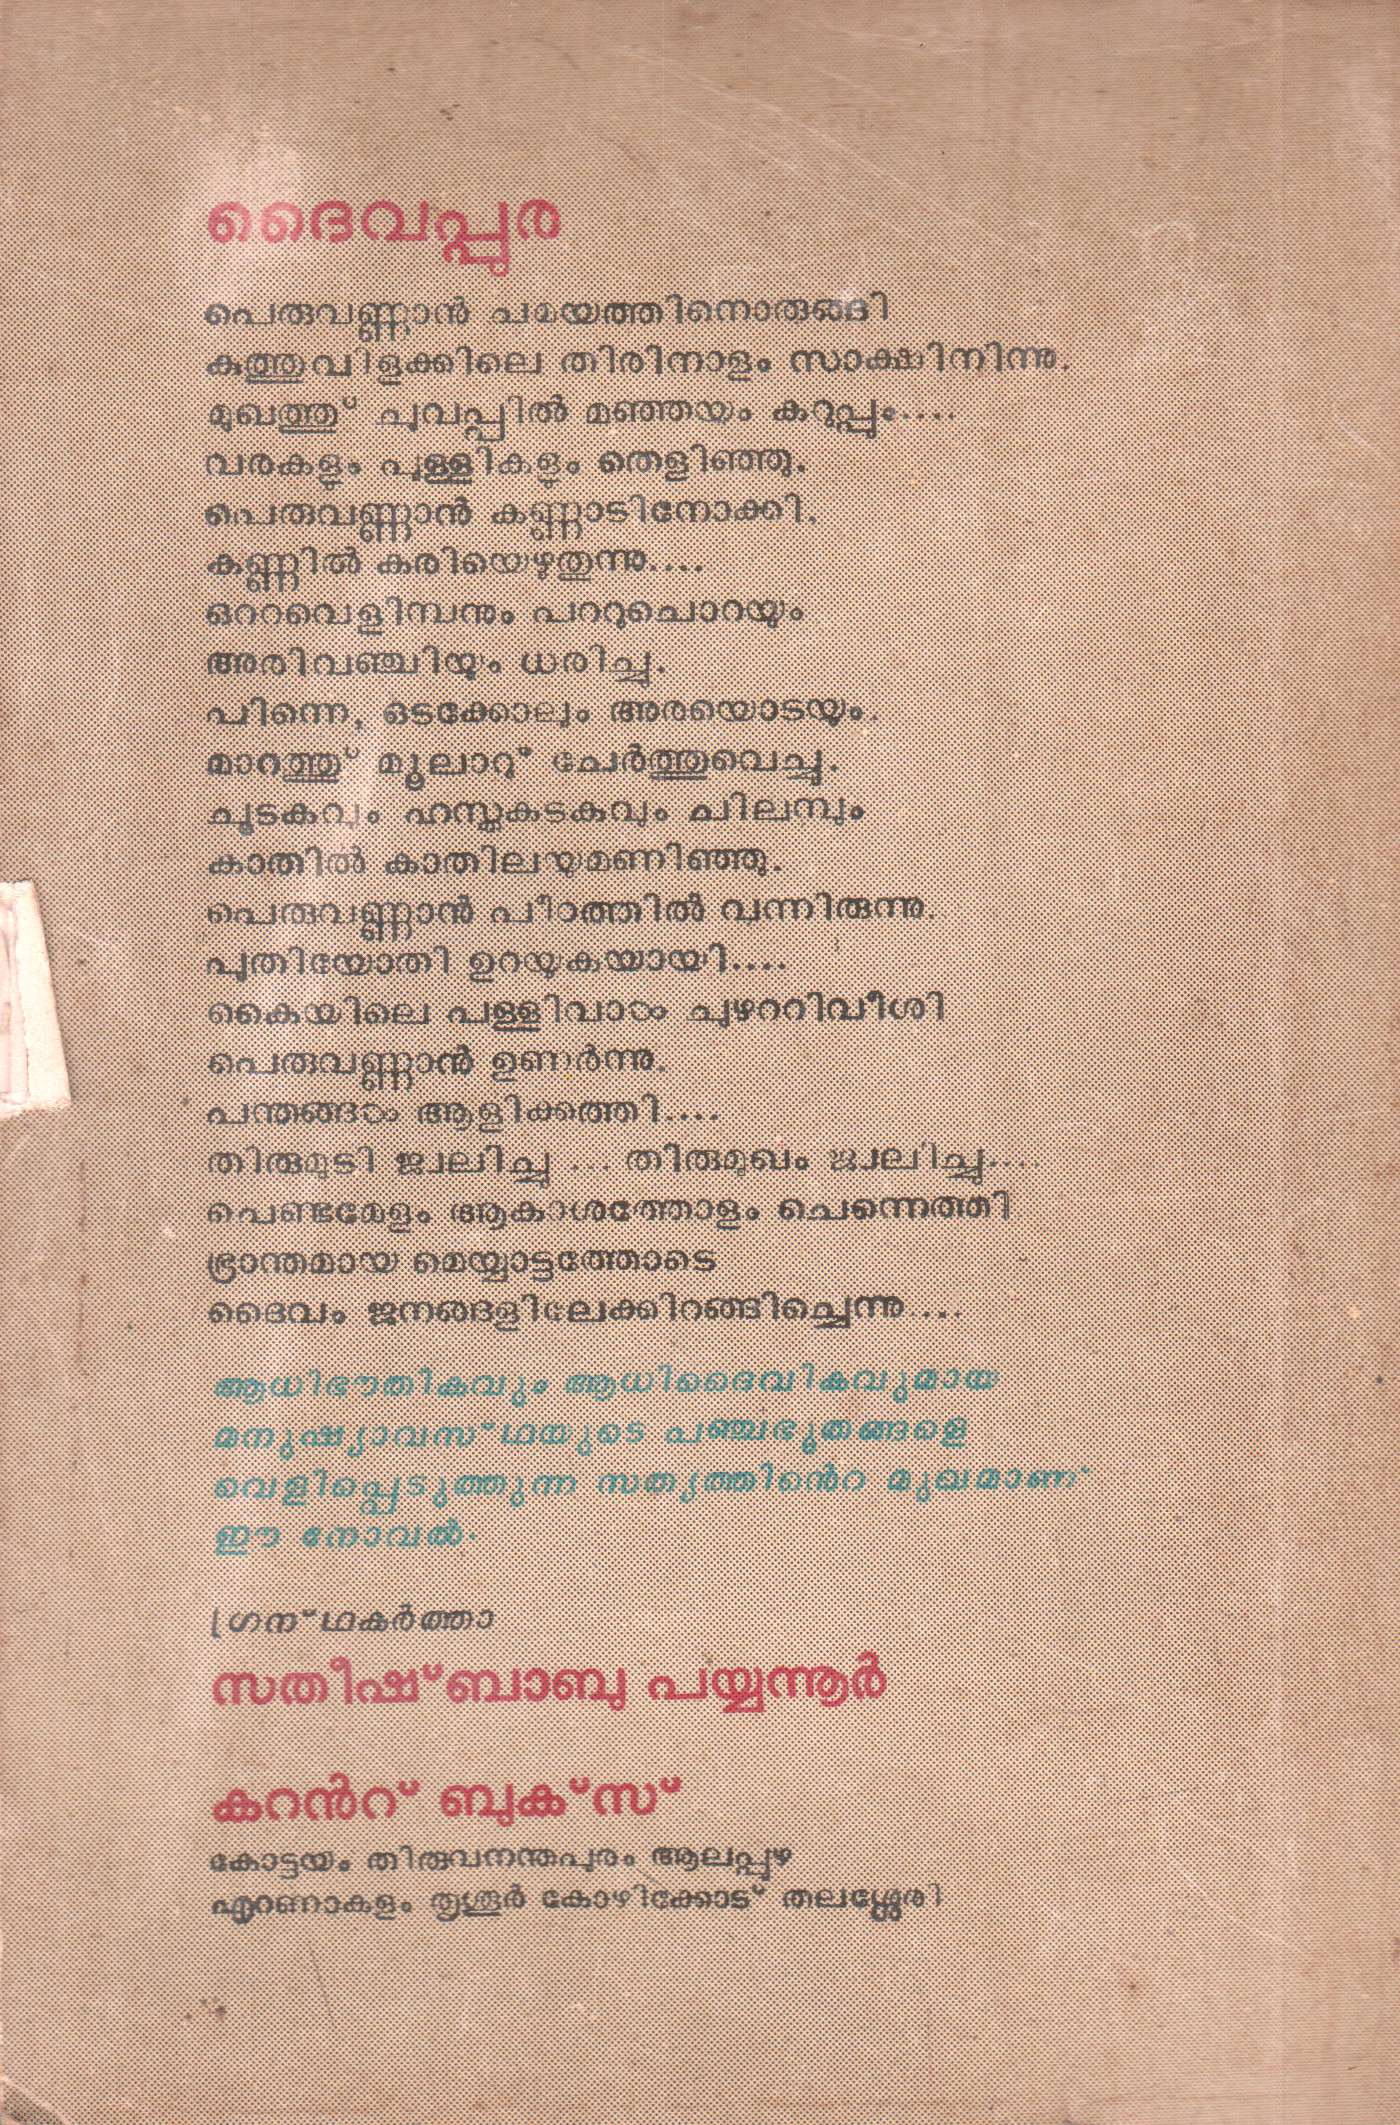 ദൈവപ്പുര
പെരുവണ്ണാൻ ചമയത്തിനൊരുങ്ങി
കുത്തുവിളക്കിലെ തിരിനാളം സാക്ഷിനിന്നു.
മുഖത്തു് ചുവപ്പിൽ മഞ്ഞയും കറുപ്പും....
വരകളും പുള്ളികളും തെളിഞ്ഞു.
പെരുവണ്ണാൻ കണ്ണാടിനോക്കി.
കണ്ണിൽ കരിയെഴുതുന്നു....
ഒററവെളിമ്പനും പററുചൊറയും
അരിവഞ്ചിയും ധരിച്ചു.
പിന്നെ, ഒടക്കോലും അരയൊടയും.
മാറത്തു് മൂലാറു് ചേർത്തുവെച്ചു.
ചൂടകവും ഹസ്തകടകവും ചിലമ്പും
കാതിൽ കാതിലയുമണിഞ്ഞു.
പെരുവണ്ണാൻ പീഠത്തിൽ വന്നിരുന്നു.
പുതിയോതി ഉറയുകയായി....
കൈയിലെ പള്ളിവാൾ ചുഴററിവീശി
പെരുവണ്ണാൻ ഉണർന്നു.
പന്തങ്ങൾ ആളിക്കത്തി....
തിരുമുടി ജ്വലിച്ചു ... തിരുമുഖം ജ്വലിച്ചു....
ചെണ്ടമേളം ആകാശത്തോളം ചെന്നെത്തി
ഭ്രാന്തമായ മെയ്യാട്ടത്തോടെ
ദൈവം ജനങ്ങളിലേക്കിറങ്ങിച്ചെന്നു....
ആധിഭൗതികവും ആധിദൈവികവുമായ
മനുഷ്യാവസ്ഥയുടെ പഞ്ചഭൂതങ്ങളെ
വെളിപ്പെടുത്തുന്ന സത്യത്തിൻെറ മുഖമാണ്
ഈ നോവൽ.
ഗ്രന്ഥകർത്താ
സതീഷ്ബാബു പയ്യന്നൂർ
കറൻറ് ബുക്സ്
കോട്ടയം തിരുവനന്തപുരം ആലപ്പുഴ
എറണാകുളം തൃശൂർ കോഴിക്കോട് തലശ്ശേരി